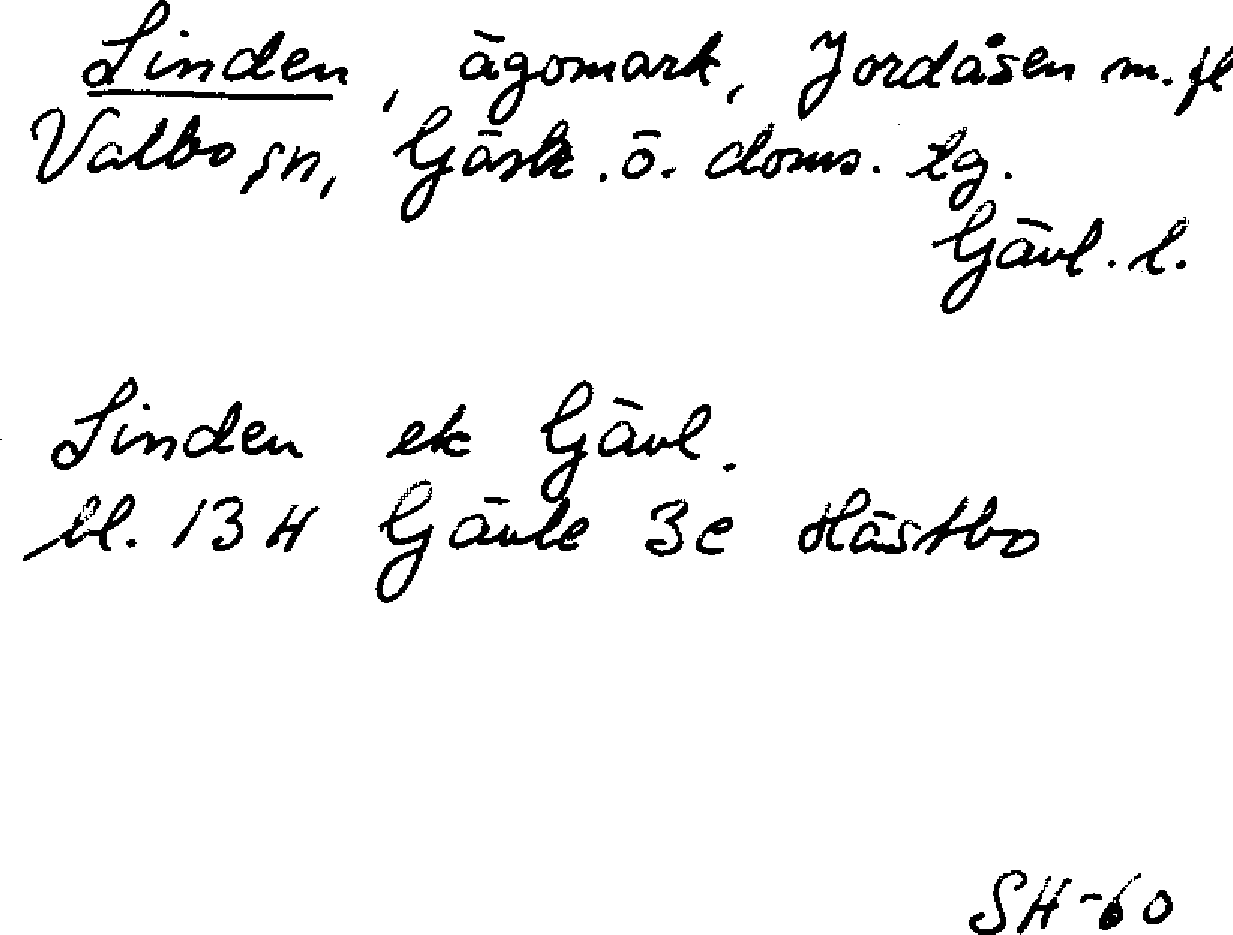 Linden, ägomark, Jordåsen m.fl
Valbo sn, Gästr. ö. doms. tg.
Gävl. l.
Linden ek Gävl.
bl. 13 H Gävle 3c Hästbo
SH-60